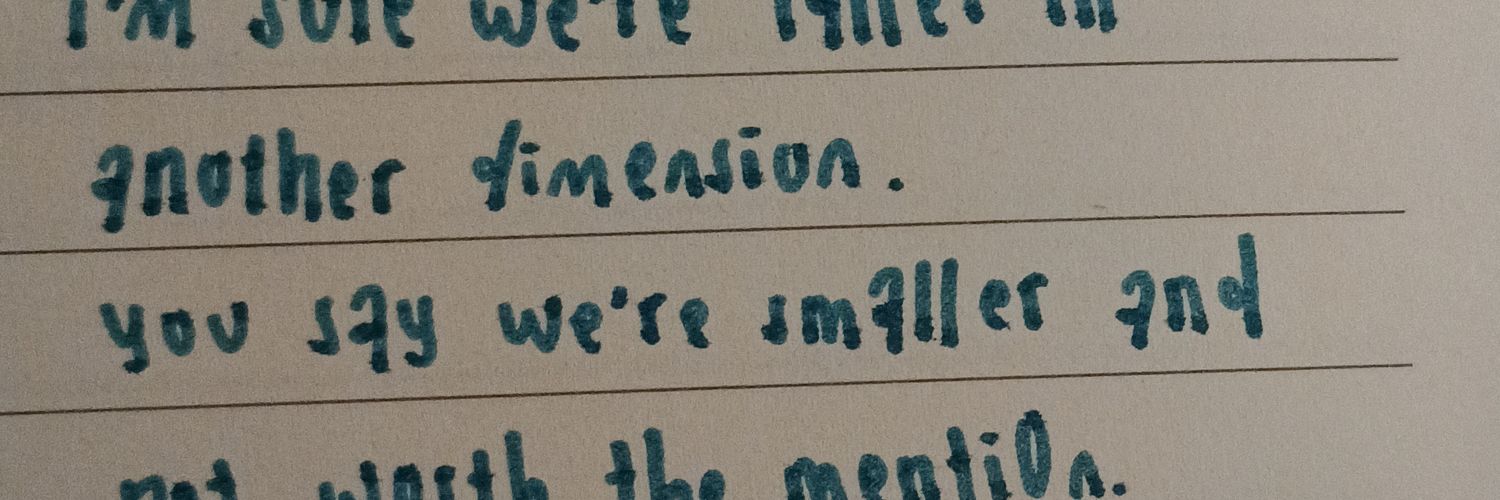 I'm sure we're taller in
another dimension.
you say we're smaller and
not worth the mention.